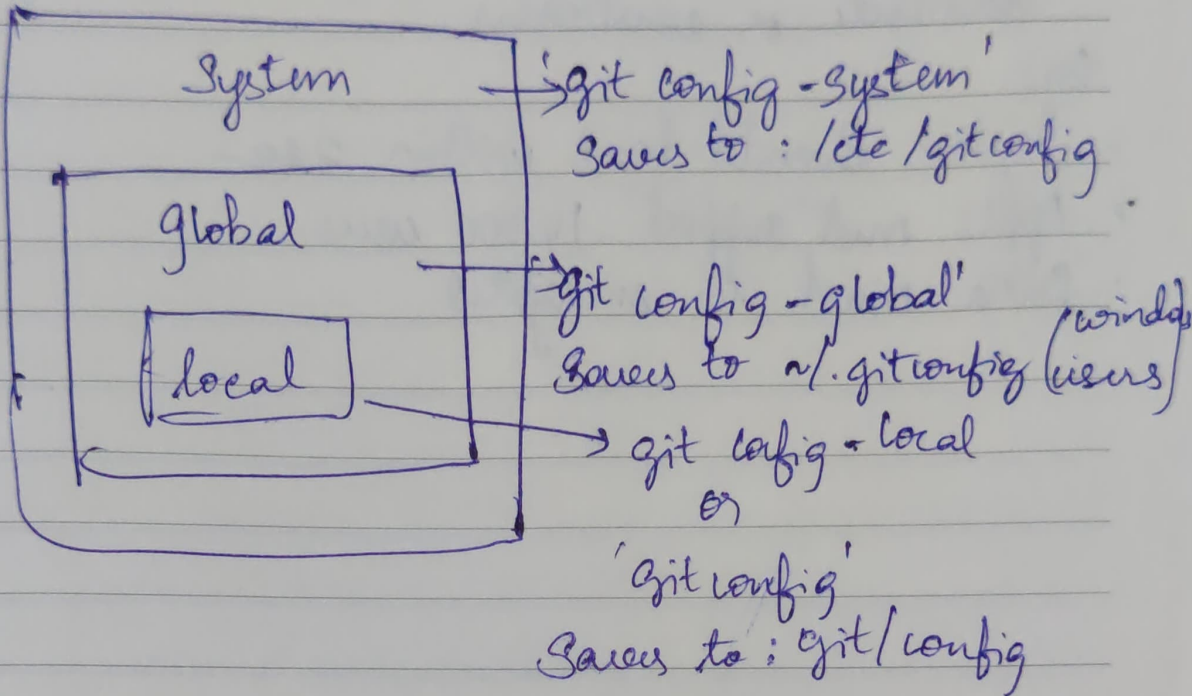 System
'git config -system'
Saves to : /etc/gitconfig
global
'git config - global'
Saves to ~/.gitconfig (windows
users)
local
git config - local
or
'git config'
Saves to : git/config